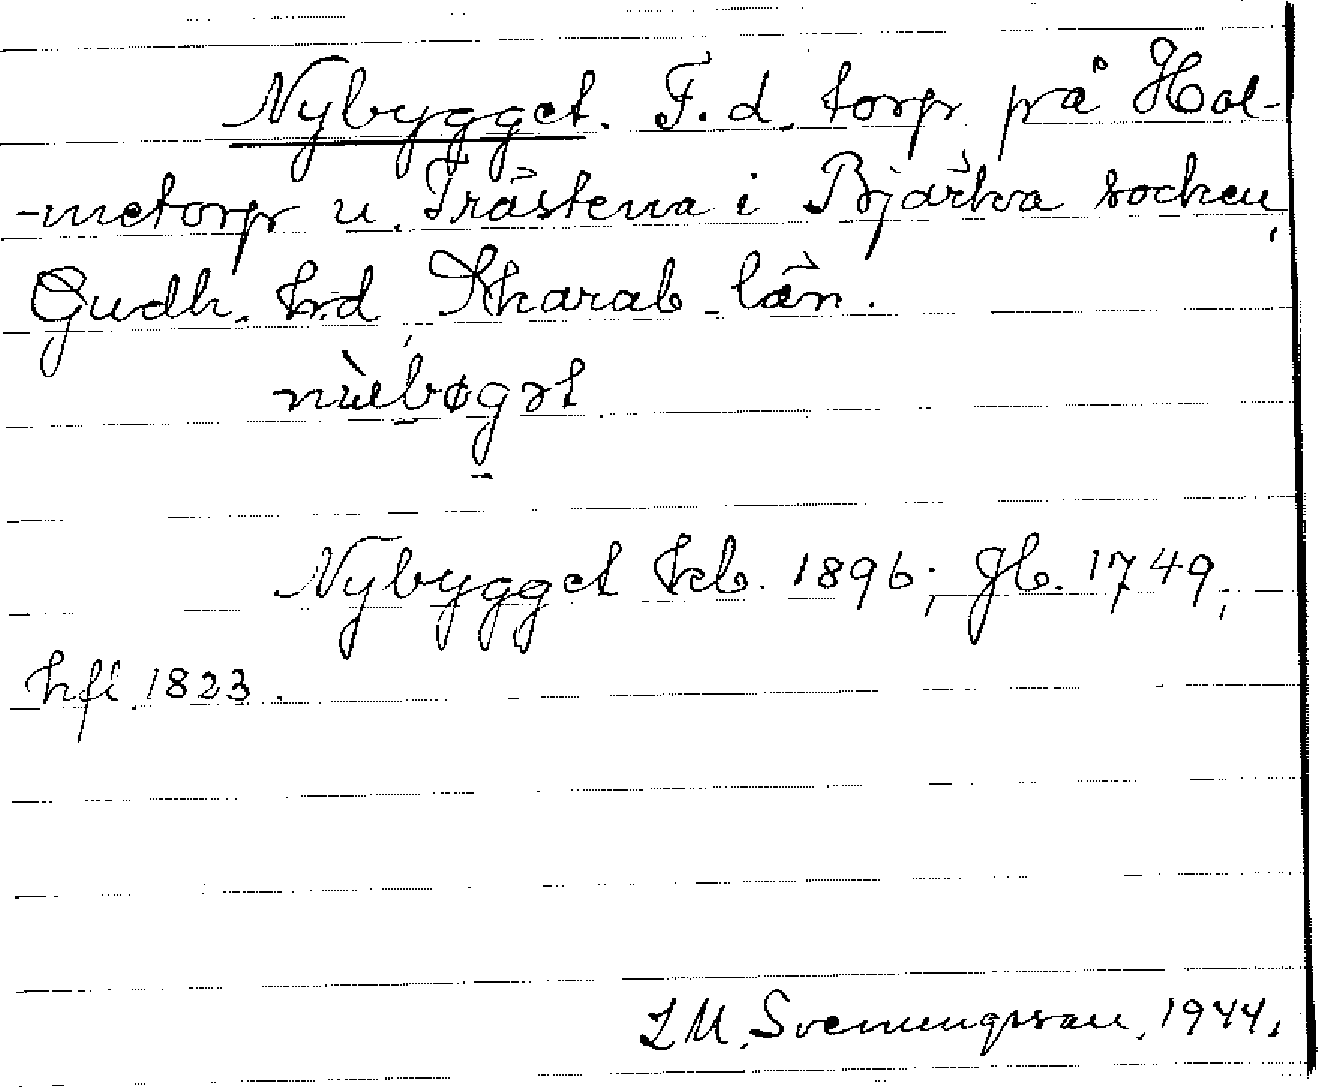 Nybygget. F. d. torp på Hol-
-metorp u. Trästena i Bjärka socken,
Gudh. hrd, Skarab. län.
nùebøgət
Nybygget kcb. 1896; Jb. 1749,
hfl 1823.
L M. Svenungsson, 1944.